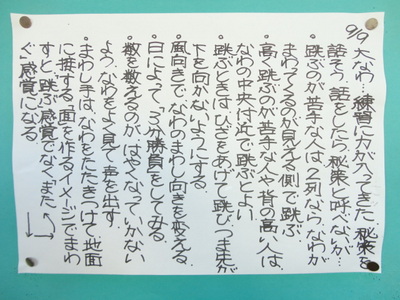 9/9 大なわ…練習に力が入ってきた。秘策を
話そう。話をしたら秘策と呼べないが…
・跳ぶのが苦手な人は、2列なら、なわが
まわってくるのが見える側で跳ぶ。
・高く跳ぶのが苦手な人や背の高い人は、
なわの中央付近で跳ぶとよい。
・跳ぶときはひざをあげて跳び、つま先が
下を向かないようにする。
・風向きで、なわのまわし向きを変える。
・日によって、「3分勝負」をしてみる。
・数を数えるのがはやくなっていかない
よう、なわをよく見て声を出す。
・まわし手は、なわをたたきつけて、地面
に接する「面を作る」イメージでまわ
すと、"跳ぶ"感覚でなく、"また
ぐ"感覚になる。